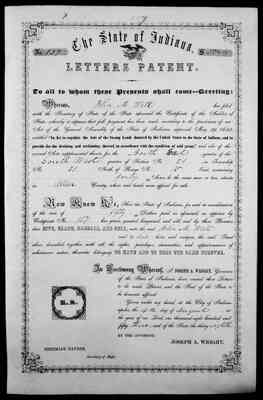 The State of Indiana,
LETTERS PATENT.
To all to whom these Presents shall come—Greeting:
Whereas, John M. has filed
with the Secretary of State of the State aforesaid the Certificate of the Auditor of
State, whereby it appears that full payment has been made, according to the provisions of an
Act of the General Assembly of the State of Indiana, approved May 29, 1852
entitled "An Act to regulate the Sale of the Swamp Lands donated by the United States to the State of Indiana, and to
provide for the draining and reclaiming thereof, in accordance with the condition of said grant," and also of the
several Acts supplemental thereto for the South East quarter of the
South West quarter of Section in Township
North of Range East, containing
forty Acres, be the same more or less, situate
in County, where said lands were offered for sale.
Now Know Ye, that the State for and in consideration
of the sum of fifty Dollars paid as aforesaid as appears by
Certificate No. have granted, bargained and sold, and by these Presents
does GIVE, GRANT, BARGAIN, AND SELL, unto the said John M.
and to heirs and assigns, the said Tract
above described, together with all the rights, privileges, immunities, and appurtenances of
whatsoever nature thereunto belonging TO HAVE AND TO HOLD THE SAME FOREVER.
In Testimony Whereof, I JOSEPH A. WRIGHT, Governor
of the State of Indiana, have caused these Letters
to be made Patent, and the Seal of the State to
be hereunto affixed.
Given under my hand, at the City of Indianapolis the day of August in
the year of our Lord, one thousand eight hundred and
fifty and of the State the thirty
BY THE GOVERNOR:
JOSEPH A. WRIGHT.
NEHEMIAH HAYDEN,
Secretary of State.